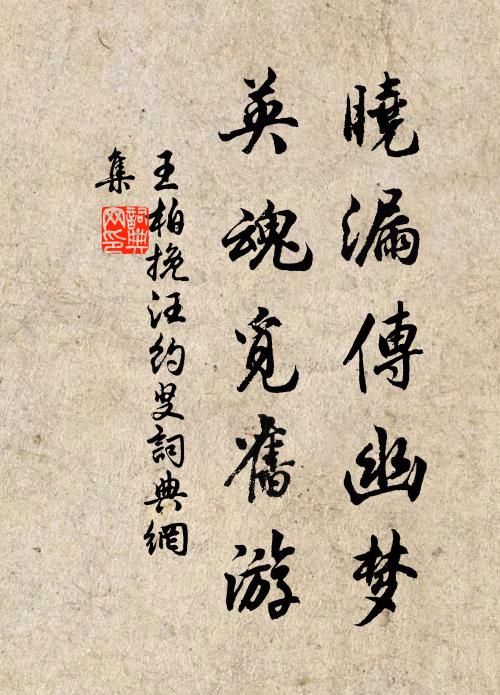 曉漏傳幽梦
英魂覓舊游
王柏挽汪約叟詞典網
集
詞典
网印